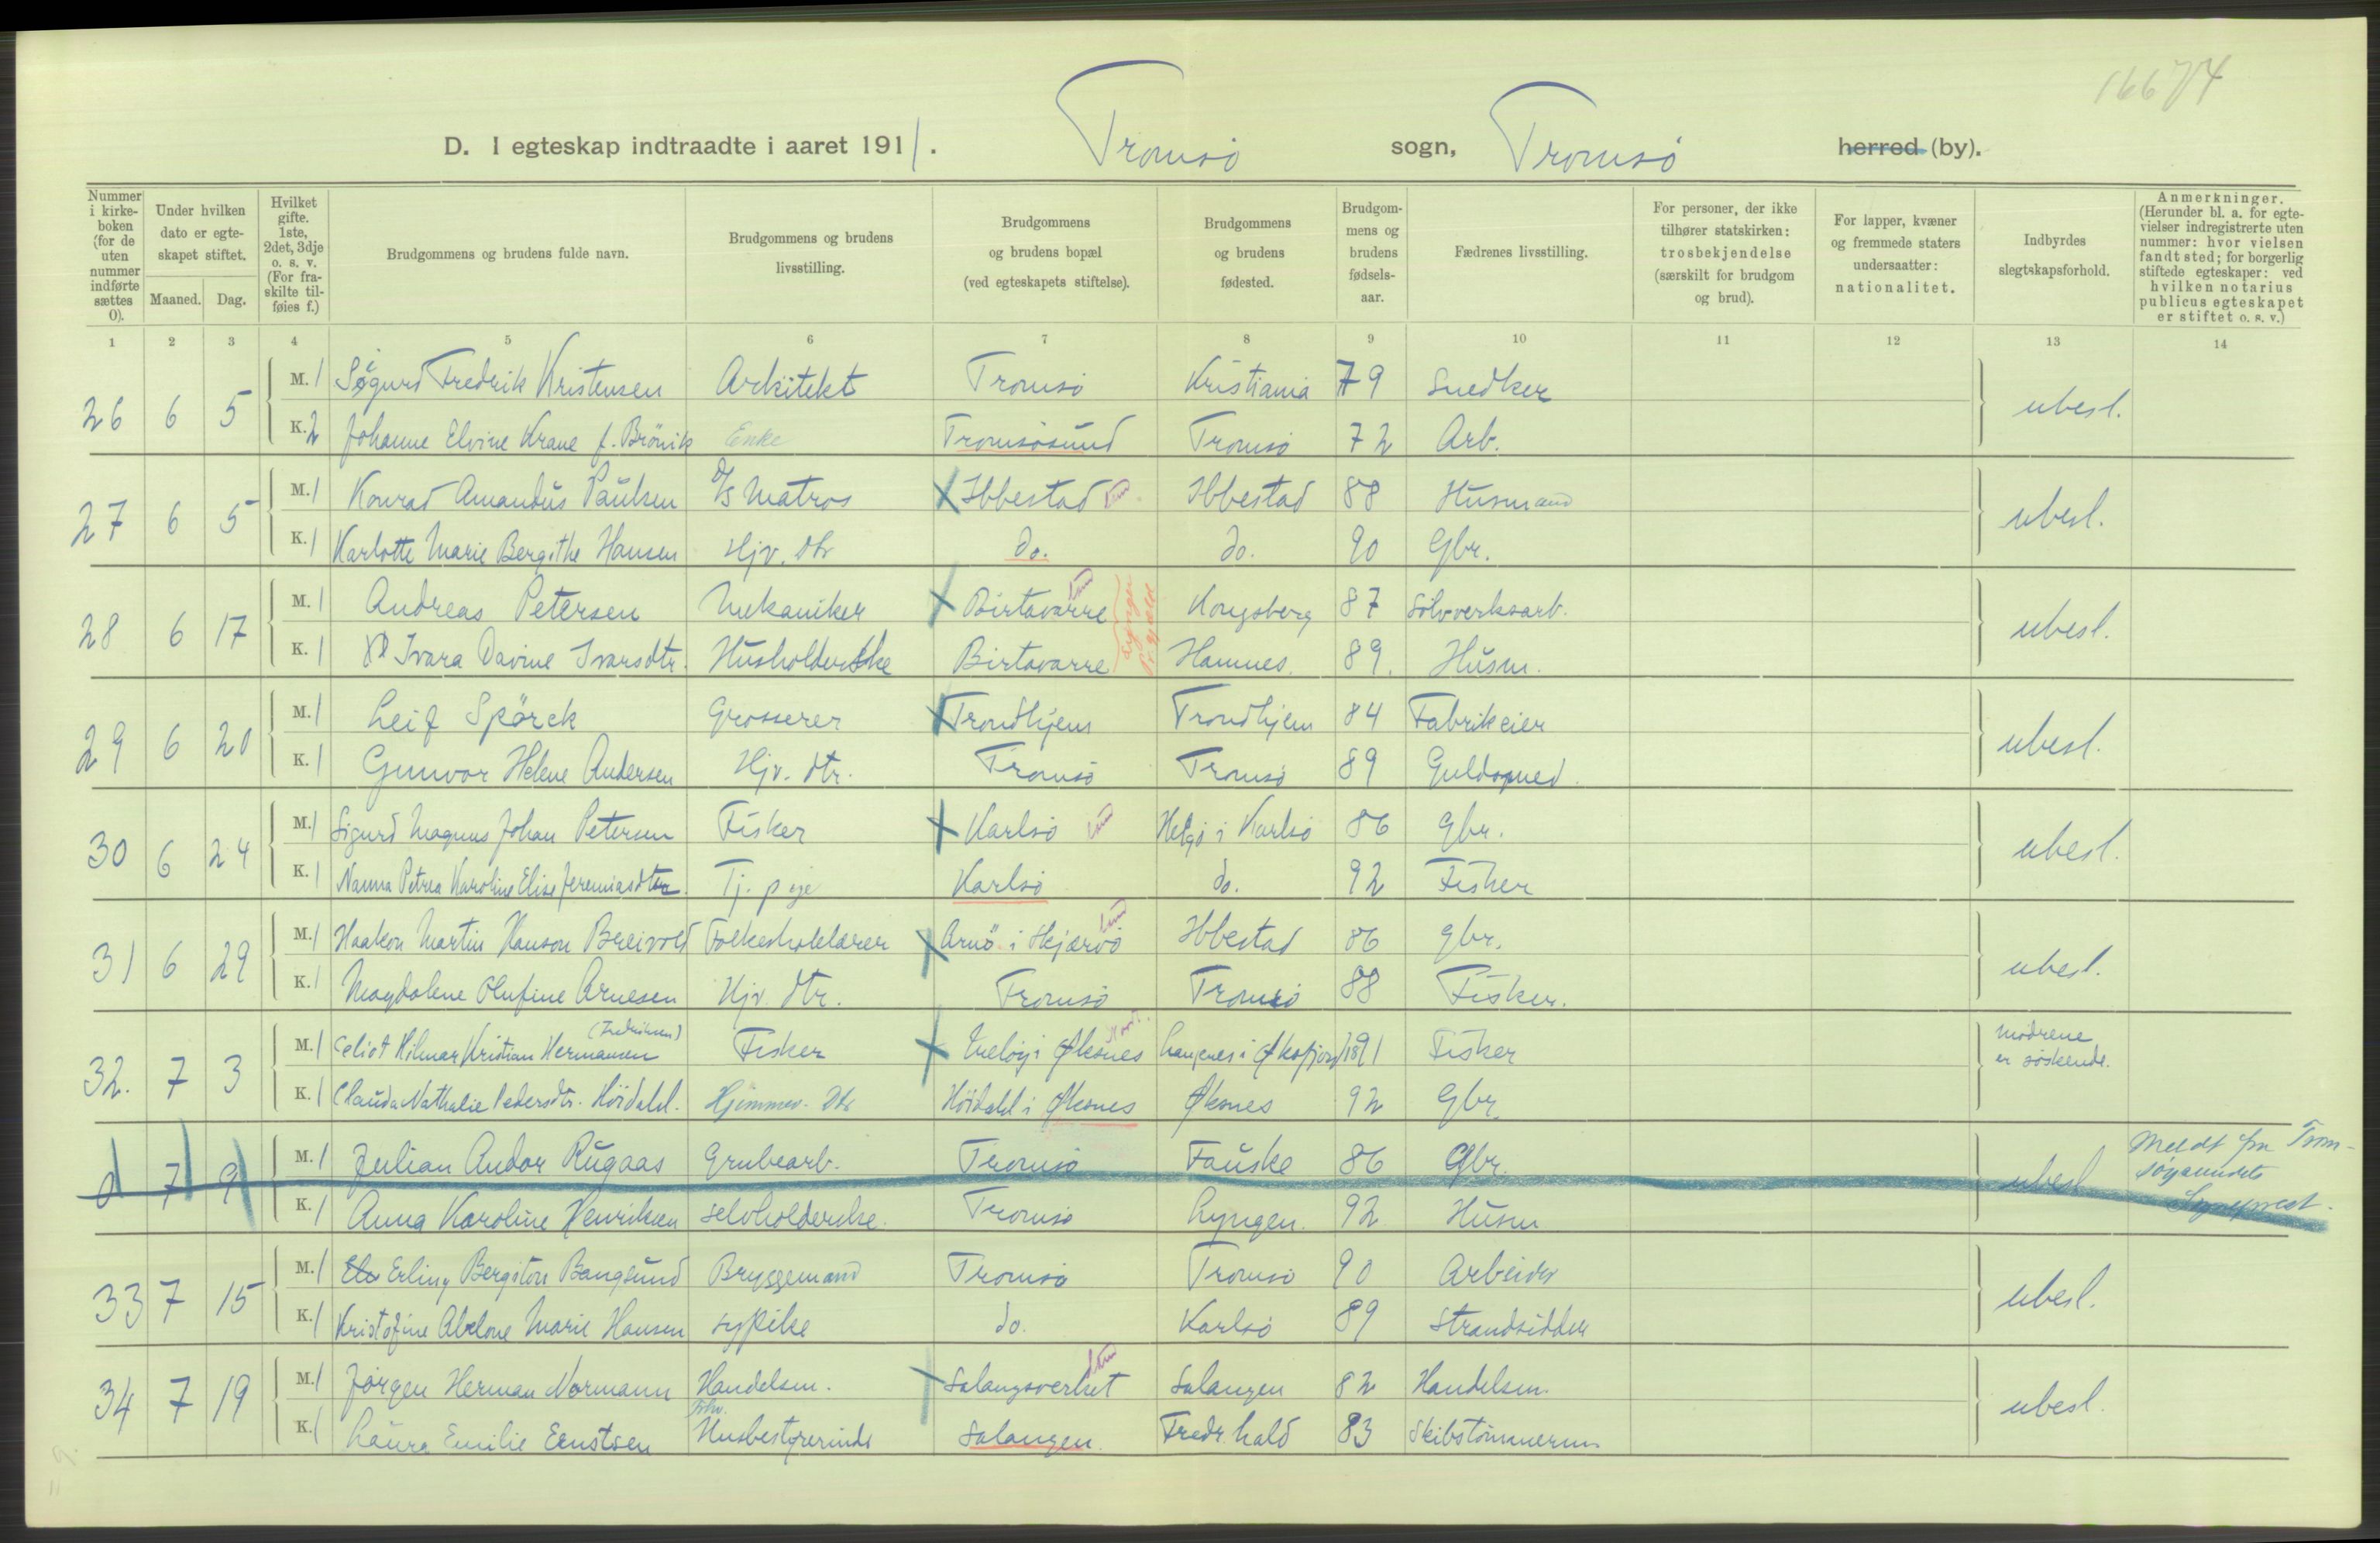 16674
D. I egteskap indtraadte i aaret 1911. Tromsö sogn, Tromsö herred (by).
Nummer i kirkeboken (for de uten nummer indførte sættes 0).
Under hvilken dato er egteskapet stiftet.
Maaned. Dag.
Hvilket gifte. 1ste, 2det, 3dje o. s. v. (For fraskilte tilføies f.)
Brudgommens og brudens fulde navn.
Brudgommens og brudens livsstilling.
Brudgommens og brudens bopæl (ved egteskapets stiftelse).
Brudgommens og brudens fødested.
Brudgommens og brudens fødselsaar.
Fædrenes livsstilling.
For personer, der ikke tilhører statskirken: trosbekjendelse (særskilt for brudgom og brud).
For lapper, kvæner og fremmede staters undersaatter: nationalitet.
Indbyrdes slegtskapsforhold.
Anmerkninger. (Herunder bl. a. for egtevielser indregistrerte uten nummer: hvor vielsen fandt sted; for borgerlig stiftede egteskaper: ved hvilken notarius publicus egteskapet er stiftet o. s. v.)
1 2 3 4 5 6 7 8 9 10 11 12 13 14
26 6 5 M. 1 Sigurd Fredrik Kristensen Arkitekt Tromsö Kristiania 79 Snedker ubesl.
K. 2 Johanne Elvine Krane f. Brönik Enke Tromsösund Tromsö 72 Arb.
27 6 5 M. 1 Konrad Amandus Paulsen D/S Matros Ibbestad Ibbestad 88 Husmand ubesl.
K. 1 Karlotte Marie Bergithe Hansen Hjv. dtr do. do. 90 Gbr.
28 6 17 M. 1 Andreas Petersen Mekaniker Birtavarre Kongsberg 87 Sölvverksarb. ubesl.
K. 1 Ivara Davine Ivarsdtr. Husholderske Birtavarre Hamnes. 89. Husm.
29 6 20 M. 1 Leif Spörck Grosserer Trondhjem Trondhjem 84 Fabrikeier ubesl.
K. 1 Gunvor Helene Andersen Hjv. dtr. Tromsö Tromsö 89 Guldsmed.
30 6 24 M. 1 Sigurd Magnus Johan Petersen Fisker Karlsö Helgö i Karlsö 86 gbr. ubesl.
K. 1 Nanna Petrea Karoline Elise Jeremiasdtr. Tj. pige Karlsö do. 92 Fisker
31 6 29 M. 1 Haakon Martin Hanson Breivold Folkeskolelærer Arnö i Skjærvö Ibbestad 86 gbr. ubesl.
K. 1 Magdalene Olufine Arnesen Hjv. dtr. Tromsö Tromsö 88 Fisker.
32. 7 3 M. 1 Celiot Hilmar Kristian Hermansen Fisker i Øksnes i Øksfjord 1891 Fisker Mødrene er söskende.
K. 1 Clauda Nathalie Pedersdtr. Höidahl. Hjemmev. Dtr Höidahl i Øksnes Øksnes 92 Gbr.
0 7 9 M. 1 Julian Andor Rugaas Grubearb. Tromsö Fauske 86 Gbr. ubesl. Meldt fra Tromsøysundets Sogneprest.
K. 1 Anna Karoline Henriksen selvholderske. Tromsö Lyngen. 92 Husm
33 7 15 M. 1 Erling Bergiton Bangsund Bryggemand Tromsö Tromsö 90 Arbeider ubesl.
K. 1 Kristofine Abelone Marie Hansen sypike do. Karlsö 89 Strandsidder
34 7 19 M. 1 Jörgen Herman Normann Handelsm. Salangsverket Salangen 82 Handelsm. ubesl.
K. 1 Laura Emilie Ernstsen Husbestyrerinde Salangen. Fredr.hald 83 Skibstömmerm.